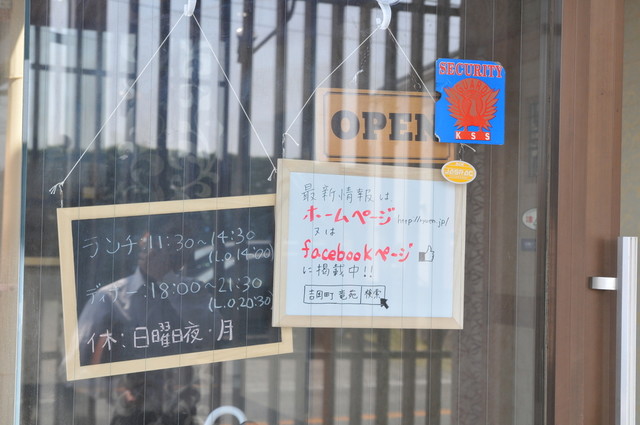 ランチ:11:30~14:30
(L.O.14:00)
ディナー:18:00~21:30
(L.O.20:30)
休:日曜日夜・月
OPEN
最新情報は
ホームページ
又は
facebookページ
に掲載中!!
吉田町 竜苑 検索
SECURITY
KSS